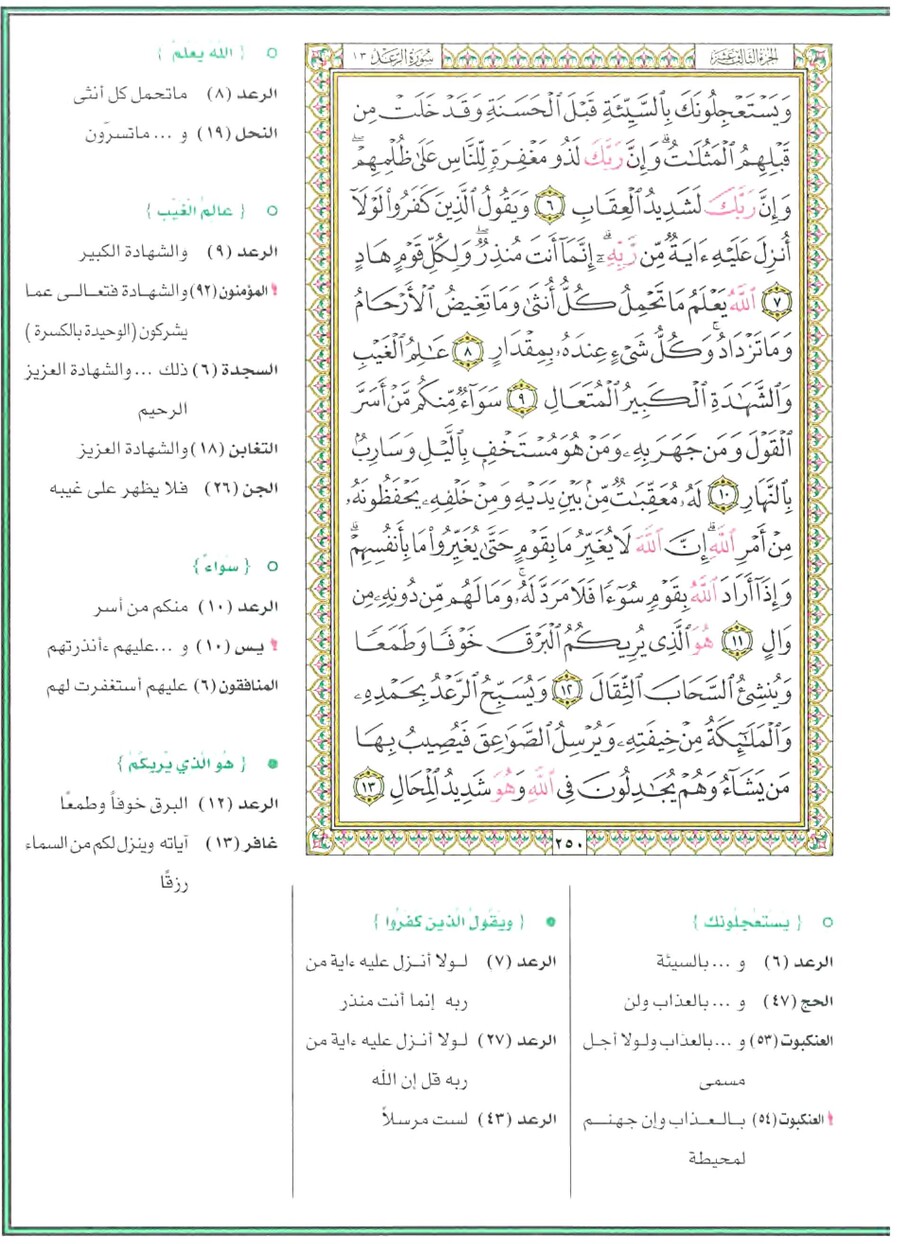 الجزء الثالث عشر
سورة الرعد ١٣
وَيَسْتَعْجِلُونَكَ بِالسَّيِّئَةِ قَبْلَ الْحَسَنَةِ وَقَدْ خَلَتْ مِن
قَبْلِهِمُ الْمَثُلَاتُ ۗ وَإِنَّ رَبَّكَ لَذُو مَغْفِرَةٍ لِّلنَّاسِ عَلَىٰ ظُلْمِهِمْ ۖ
وَإِنَّ رَبَّكَ لَشَدِيدُ الْعِقَابِ ٦ وَيَقُولُ الَّذِينَ كَفَرُوا لَوْلَا
أُنزِلَ عَلَيْهِ ءَايَةٌ مِّن رَّبِّهِ ۗ إِنَّمَا أَنتَ مُنذِرٌ ۖ وَلِكُلِّ قَوْمٍ هَادٍ
٧ اللَّهُ يَعْلَمُ مَا تَحْمِلُ كُلُّ أُنثَىٰ وَمَا تَغِيضُ الْأَرْحَامُ
وَمَا تَزْدَادُ ۖ وَكُلُّ شَيْءٍ عِندَهُ بِمِقْدَارٍ ٨ عَالِمُ الْغَيْبِ
وَالشَّهَادَةِ الْكَبِيرُ الْمُتَعَالِ ٩ سَوَاءٌ مِّنكُم مَّنْ أَسَرَّ
الْقَوْلَ وَمَن جَهَرَ بِهِ وَمَنْ هُوَ مُسْتَخْفٍ بِاللَّيْلِ وَسَارِبٌ
بِالنَّهَارِ ١٠ لَهُ مُعَقِّبَاتٌ مِّن بَيْنِ يَدَيْهِ وَمِنْ خَلْفِهِ يَحْفَظُونَهُ
مِنْ أَمْرِ اللَّهِ ۗ إِنَّ اللَّهَ لَا يُغَيِّرُ مَا بِقَوْمٍ حَتَّىٰ يُغَيِّرُوا مَا بِأَنفُسِهِمْ ۗ
وَإِذَا أَرَادَ اللَّهُ بِقَوْمٍ سُوءًا فَلَا مَرَدَّ لَهُ ۚ وَمَا لَهُم مِّن دُونِهِ مِن
وَالٍ ١١ هُوَ الَّذِي يُرِيكُمُ الْبَرْقَ خَوْفًا وَطَمَعًا
وَيُنشِئُ السَّحَابَ الثِّقَالَ ١٢ وَيُسَبِّحُ الرَّعْدُ بِحَمْدِهِ
وَالْمَلَائِكَةُ مِنْ خِيفَتِهِ وَيُرْسِلُ الصَّوَاعِقَ فَيُصِيبُ بِهَا
مَن يَشَاءُ وَهُمْ يُجَادِلُونَ فِي اللَّهِ وَهُوَ شَدِيدُ الْمِحَالِ ١٣
٢٥٠
{ اللَّه يعلم }
الرعد (٨) ماتحمل كل أنثى
النحل (١٩) و ... ماتسرّون
{ عالم الغيب }
الرعد (٩) والشهادة الكبير
! المؤمنون (٩٢) والشهادة فتعالى عما
يشركون (الوحيدة بالكسرة)
السجدة (٦) ذلك ... والشهادة العزيز
الرحيم
التغابن (١٨) والشهادة العزيز
الجن (٢٦) فلا يظهر على غيبه
{ سواءً }
الرعد (١٠) منكم من أسر
! يس (١٠) و ...عليهم ءأنذرتهم
المنافقون (٦) عليهم أستغفرت لهم
{ هو الذي يريكم }
الرعد (١٢) البرق خوفاً وطمعًا
غافر (١٣) آياته وينزل لكم من السماء
رزقًا
{ يستعجلونك }
الرعد (٦) و ... بالسيئة
الحج (٤٧) و ... بالعذاب ولن
العنكبوت (٥٣) و ... بالعذاب ولولا أجل
مسمى
! العنكبوت (٥٤) بالعذاب وإن جهنم
لمحيطة
{ ويقول الذين كفروا }
الرعد (٧) لولا أنزل عليه ءاية من
ربه إنما أنت منذر
الرعد (٢٧) لولا أنزل عليه ءاية من
ربه قل إن الله
الرعد (٤٣) لست مرسلاً